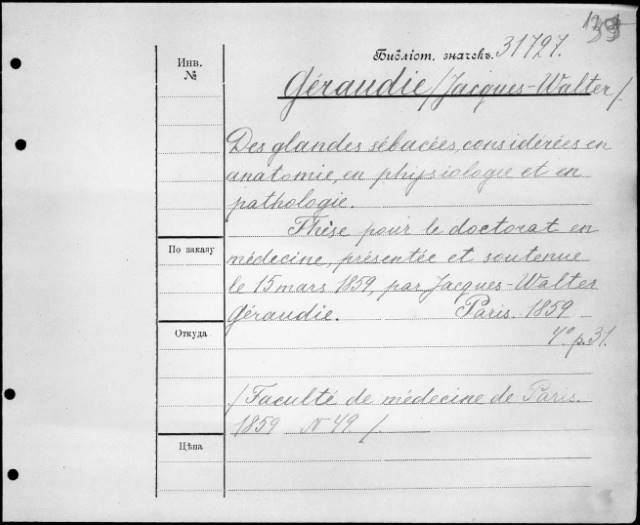 Инв.
№
Библіот. значекъ. 31727.
Géraudie /Jacques-Walter/.
Des glandes sébacées, considérées en
anatomie, en physiologie et en
pathologie.
Thèse pour le doctorat en
По заказу
médecine, présentée et soutenue
le 15 mars 1859, par Jacques-Walter
Géraudie. Paris. 1859
Откуда
4º p. 31.
/Faculté de médecine de Paris.
1859 N 49 /.
Цѣна